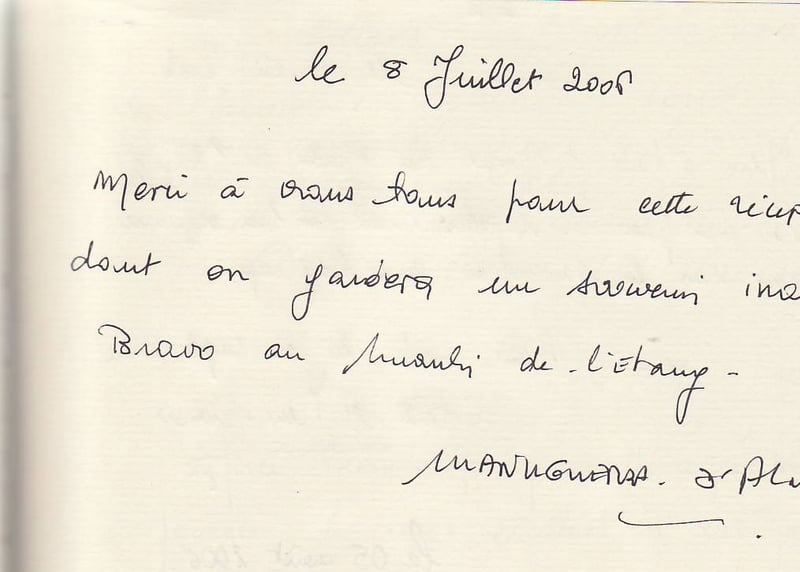 le 8 Juillet 2006
Merci à vous tous pour cette récep
dont on gardera un souvenir ino
Bravo au Moulin de l'Etang -